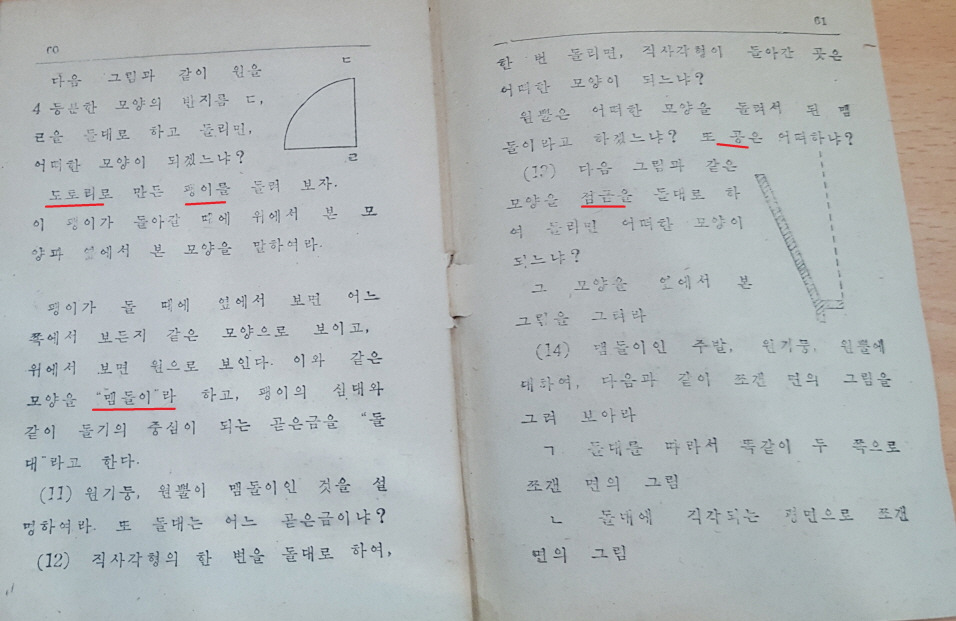 60
다음 그림과 같이 원을
4등분한 모양의 반지름 ㄷ,
ㄹ을 돌대로 하고 돌리면,
어떠한 모양이 되겠느냐?
ㄷ
ㄹ
도토리로 만든 팽이를 돌려 보자.
이 팽이가 돌아갈 때에 위에서 본 모
양과 옆에서 본 모양을 말하여라.
팽이가 돌 때에 옆에서 보면 어느
쪽에서 보든지 같은 모양으로 보이고,
위에서 보면 원으로 보인다. 이와 같은
모양을 "맴돌이"라 하고, 팽이의 심대와
같이 돌기의 중심이 되는 곧은금을 "돌
대"라고 한다.
(11) 원기둥, 원뿔이 맴돌이인 것을 설
명하여라. 또 돌대는 어느 곧은금이냐?
(12) 직사각형의 한 변을 돌대로 하여,
61
한 번 돌리면, 직사각형이 돌아간 곳은
어떠한 모양이 되느냐?
원뿔은 어떠한 모양을 돌려서 된 맴
돌이라고 하겠느냐? 또 공은 어떠하냐?
다음 그림과 같은
모양을 점금을 돌대로 하
여 돌리면 어떠한 모양이
되느냐?
그 모양을 옆에서 본
그림을 그려라
(14) 맴돌이인 주발, 원기둥, 원뿔에
대하여, 다음과 같이 쪼갠 면의 그림을
그려 보아라
ㄱ 돌대를 따라서 똑같이 두 쪽으로
쪼갠 면의 그림
ㄴ 돌대에 직각되는 평면으로 쪼갠
면의 그림